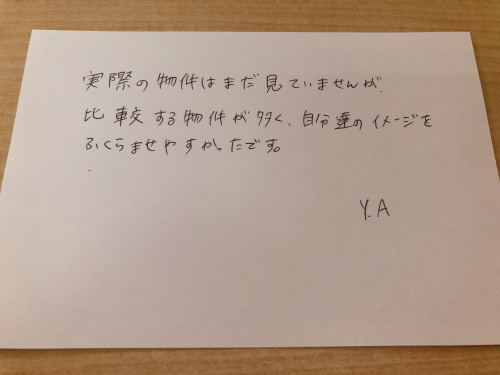 実際の物件はまだ見ていませんが、
比較する物件が多く、自分達のイメージを
ふくらませやすかったです。
Y.A